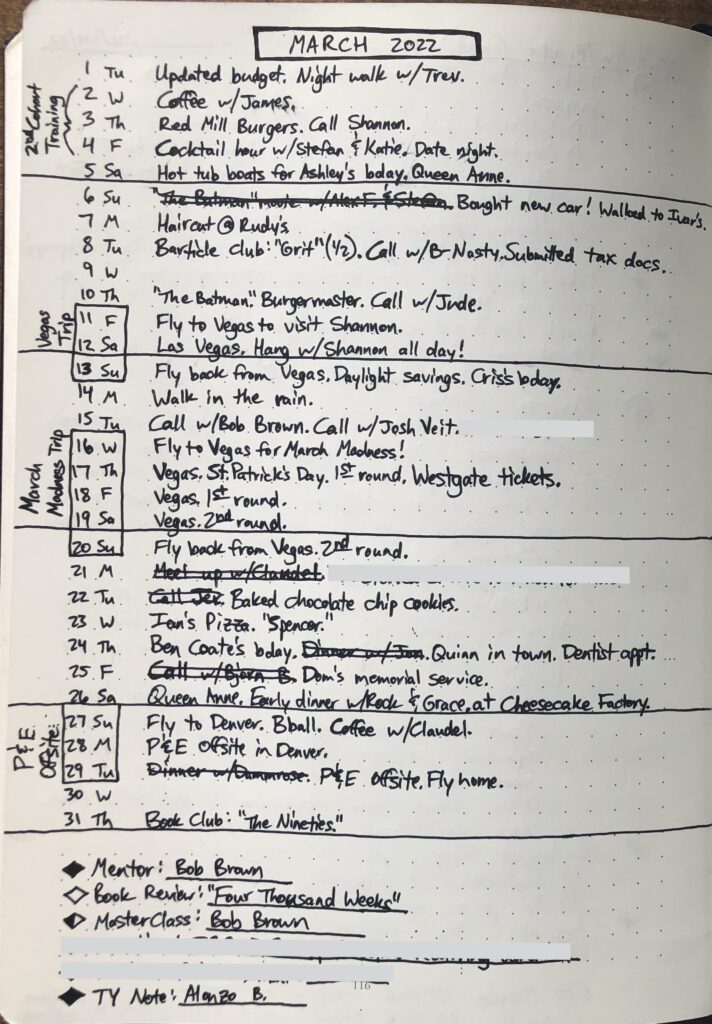 MARCH 2022
2nd Cohort Training
1 Tu Updated budget. Night walk w/Trev.
2 W Coffee w/James.
3 Th Red Mill Burgers. Call Shannon.
4 F Cocktail hour w/Stefan & Katie. Date night.
5 Sa Hot tub boats for Ashley's bday. Queen Anne.
6 Su "The Batman" movie w/Alex F. & Stefan. Bought new car! Walked to Ivar's.
7 M Haircut @ Rudy's
8 Tu Barticle club: "Grit" (1/2). Call w/B-Nasty. Submitted tax docs.
9 W
10 Th "The Batman." Burgermaster. Call w/Jude.
Vegas Trip
11 F Fly to Vegas to visit Shannon.
12 Sa Las Vegas. Hang w/Shannon all day!
13 Su Fly back from Vegas. Daylight savings. Cris's bday.
14 M Walk in the rain.
15 Tu Call w/Bob Brown. Call w/Josh Veit.
March Madness Trip
16 W Fly to Vegas for March Madness!
17 Th Vegas. St. Patrick's Day. 1st round. Westgate tickets.
18 F Vegas. 1st round.
19 Sa Vegas. 2nd round.
20 Su Fly back from Vegas. 2nd round.
21 M Meet up w/Claudel.
22 Tu Call Jer. Baked chocolate chip cookies.
23 W Ian's Pizza. "Spencer."
24 Th Ben Coate's bday. Dinner w/Jon. Quinn in town. Dentist appt.
25 F Call w/Bjorn B. Dom's memorial service.
26 Sa Queen Anne. Early dinner w/Rock & Grace, at Cheesecake Factory.
P&E Offsite:
27 Su Fly to Denver. Bball. Coffee w/Claudel.
28 M P&E Offsite in Denver.
29 Tu Dinner w/Dammrose. P&E Offsite. Fly home.
30 W
31 Th Book Club: "The Nineties."
Mentor: Bob Brown
Book Review: "Four Thousand Weeks"
MasterClass: Bob Brown
116
TY Note: Alonzo B.